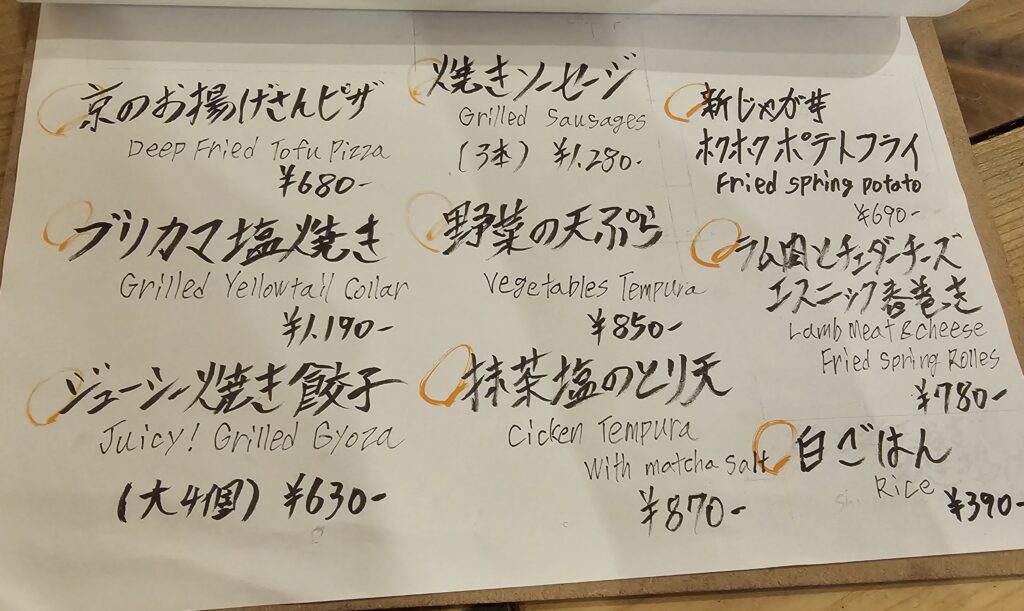 京のお揚げさんピザ
Deep Fried Tofu Pizza
¥680-
ブリカマ塩焼き
Grilled Yellowtail Collar
¥1.190-
ジューシー焼き餃子
Juicy! Grilled Gyoza
(大4個) ¥630-
焼きソーセージ
Grilled Sausages
(3本) ¥1.280-
野菜の天ぷら
Vegetables Tempura
¥850-
抹茶塩のとり天
Cicken Tempura
With matcha salt
¥870-
新じゃが芋
ホクホクポテトフライ
Fried spring potato
¥690-
ラム肉とチェダーチーズ
エスニック春巻き
Lamb Meat & cheese
Fried Spring Rolles
¥780-
白ごはん
Rice
¥390-